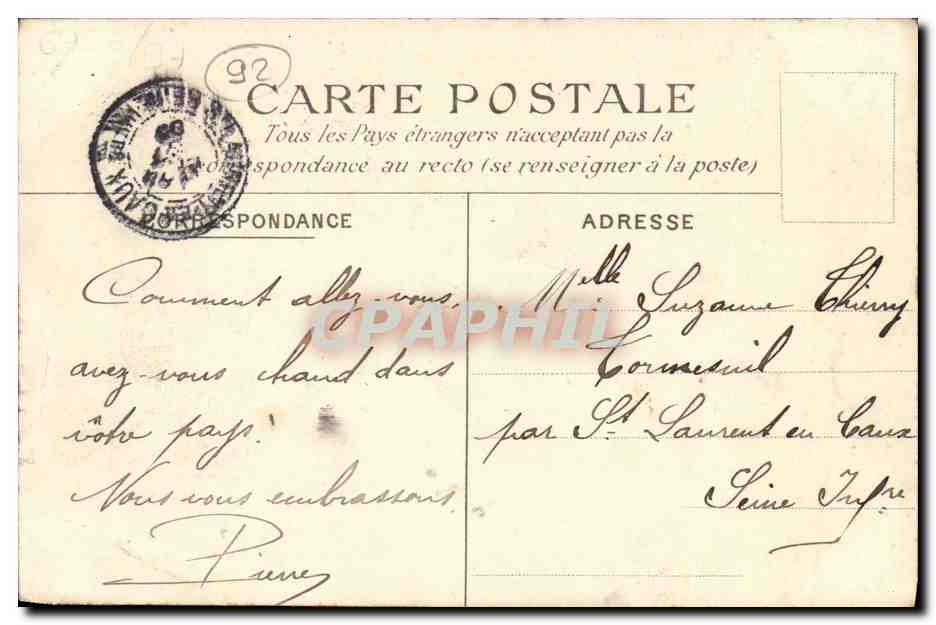 92
CARTE POSTALE
Tous les Pays étrangers n'acceptant pas la
correspondance au recto (se renseigner à la poste)
CORRESPONDANCE
Comment allez-vous,
avez-vous chaud dans
vôtre pays.
Nous vous embrassons.
Pierre
ADRESSE
Melle Suzanne Thierry
Tormesnil
par St Laurent en Caux
Seine Infre
CPAPHIL